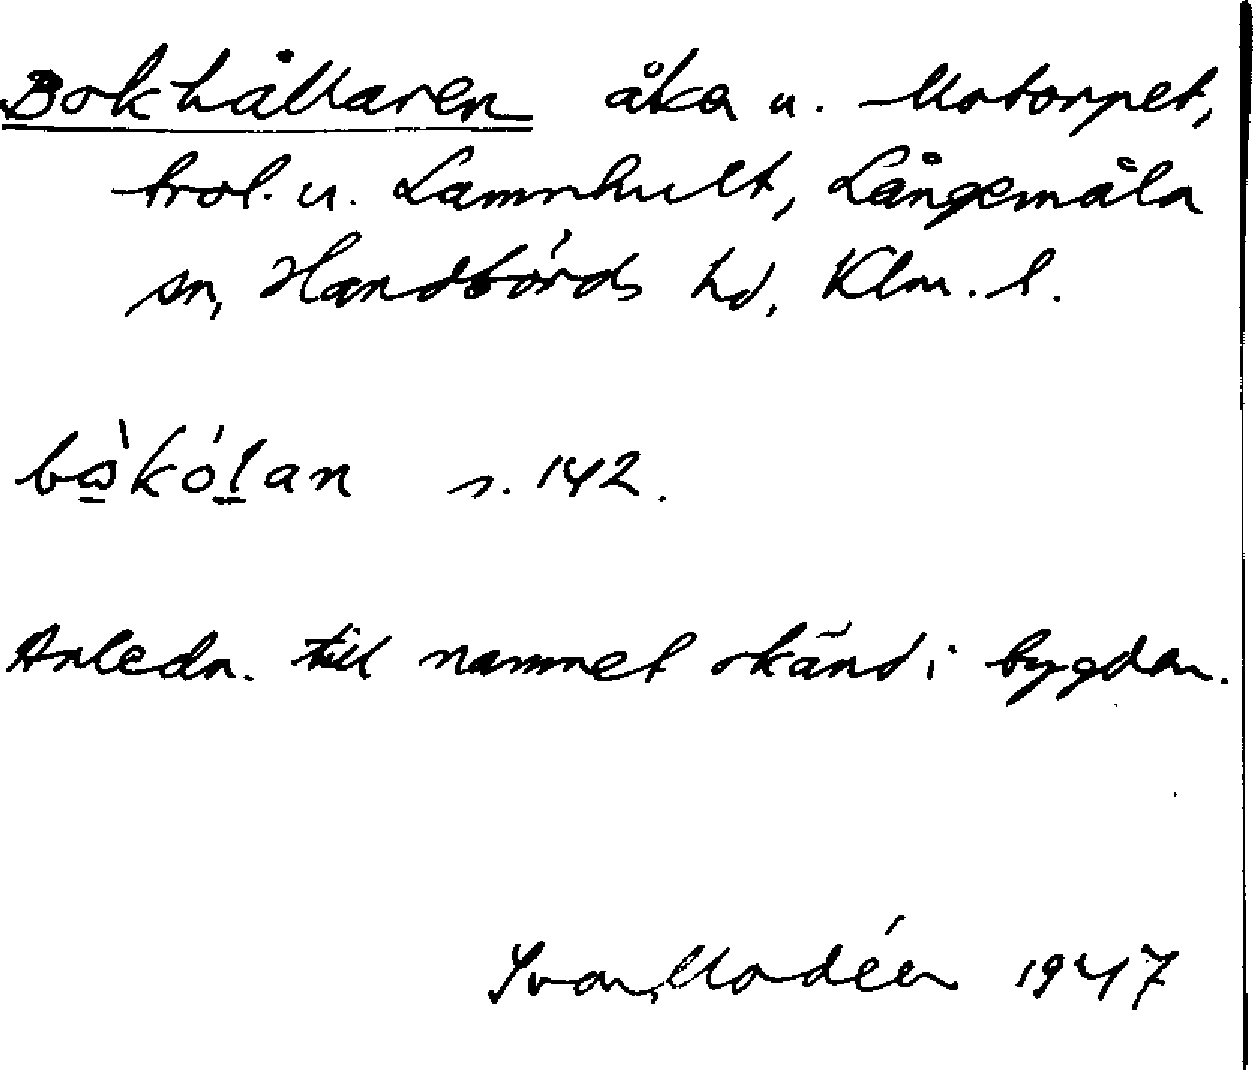 Bokhållaren åker u. Motorpet,
trol. u. Lamnhult, Långemåla
sn, Handbörds hd, Klm. l.
bo̱̍kó̱lan s. 142.
Anledn. till namnet okänd i bygden.
Ivar Modéer 1947